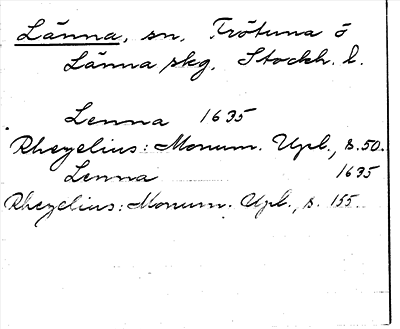 Länna, sn, Frötuna ö
Länna skg, Stockh. l.
Lenna 1635
Rhezelius: Monum. Upl., s. 50.
Lenna 1635
Rhezelius: Monum. Upl., s. 155.